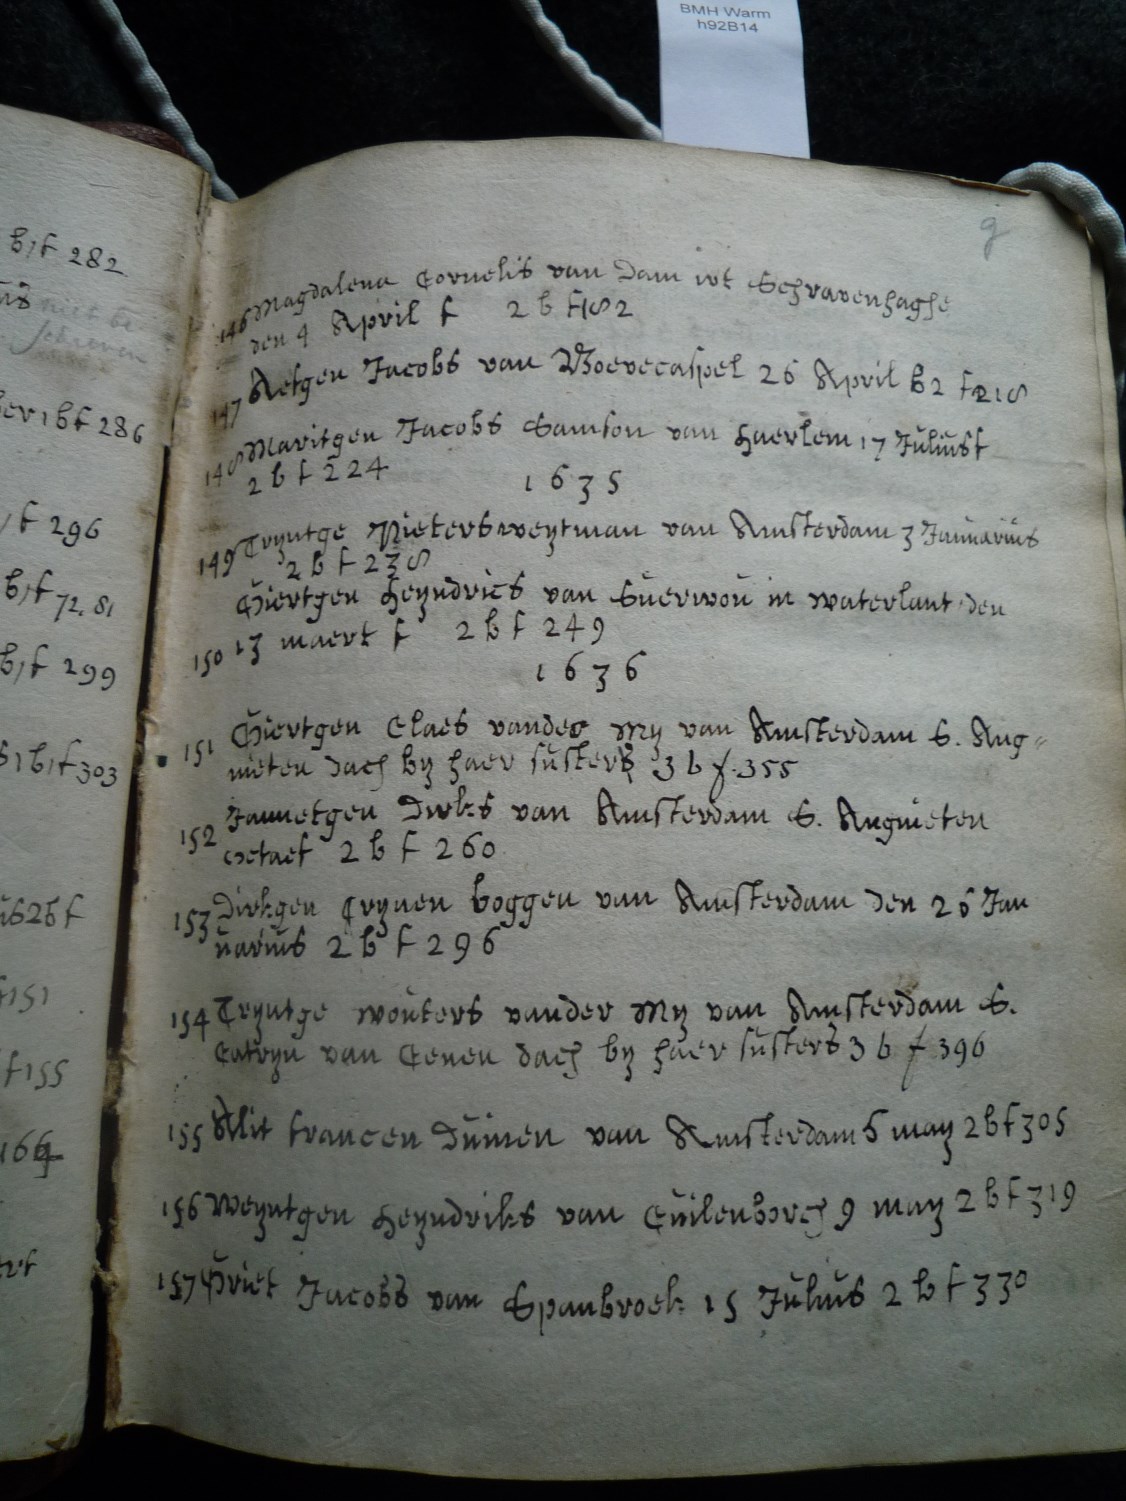 BMH Warm
h92B14
b, f 282
9
146 Magdalena Cornelis van Dam wt Schravenhaghe
den 4 April f 2 b f 182
147 Aefgen Jacobs van Woevecaspel 26 April b2 f 218
148 Maritgen Jacobs Samson van haerlem 17 Julius f
2 b f 224
1635
149 Tryntge Pieters weytman van Amsterdam 3 Januarius
2 b f 238
Giertgen heyndrics van Suerwou in waterlant den
150 13 maert f 2 b f 249
1636
151 Giertgen Claes vander My van Amsterdam S. Ang-
nieten dach by haer susters 3 b f. 355
152 Jannetgen Dirks van Amsterdam S. Angnieten
octaef 2 b f 260
153 Dirkgen Crynen boggen van Amsterdam den 26 Jan
uarius 2 b f 296
154 Tryntge wouters vander My van Amsterdam S.
Catryn van Cenen dach by haer susters 3 b f 396
155 Alit francen Duinen van Amsterdam 5 may 2 b f 305
156 Weyntgen heyndriks van Cuilenborch 9 may 2 b f 319
157 Griet Jacobs van Spanbroek 15 Julius 2 b f 330
1 b f 286
f 296
b, f 72. 81
b, f 299
1 b, f 303
2 b f
f 151
f 155
164